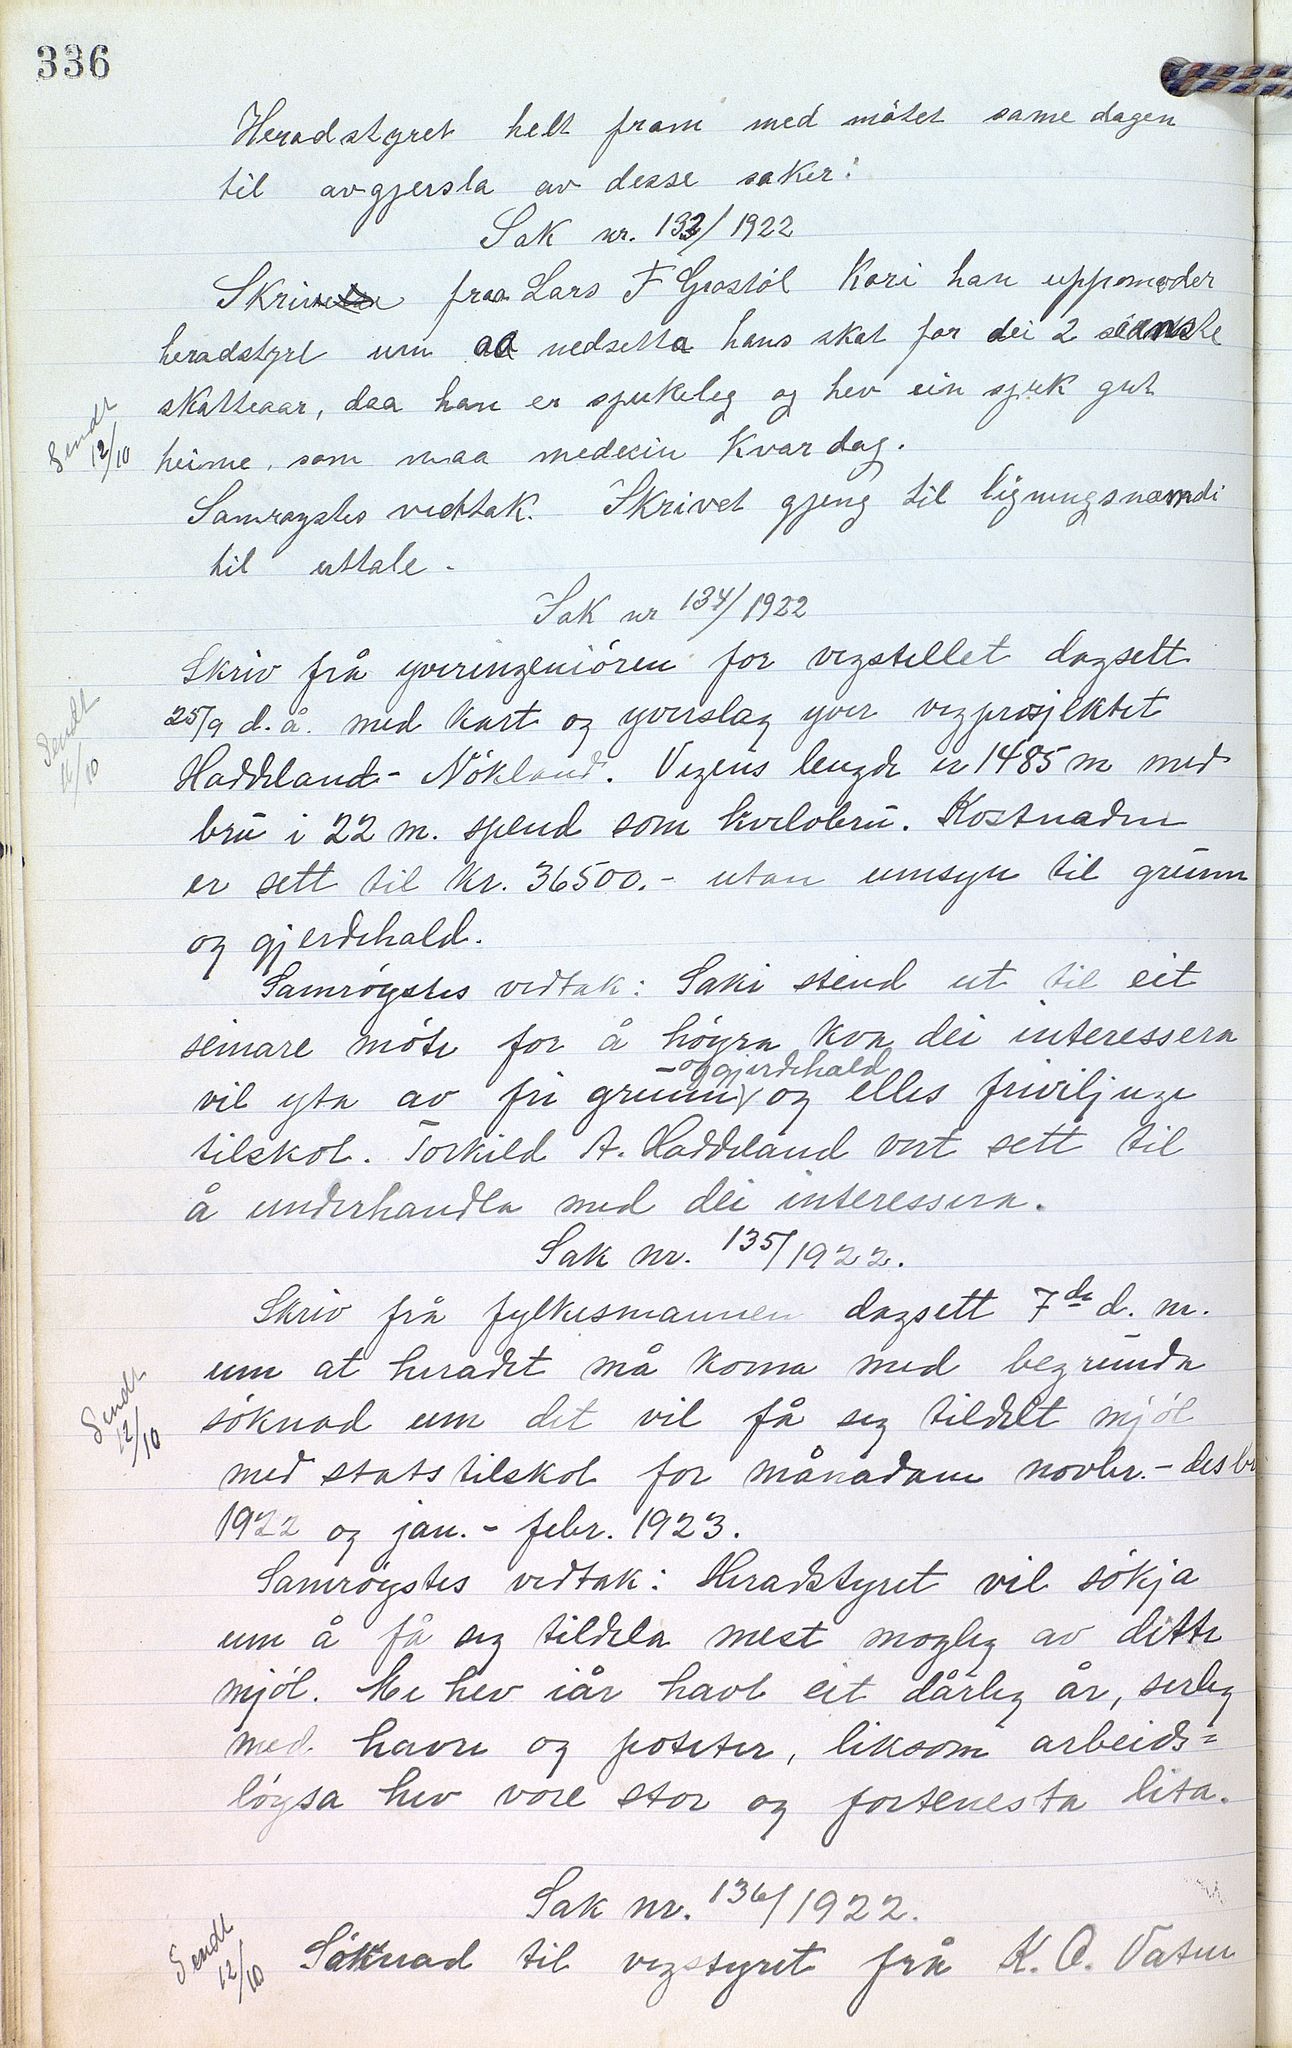 336
Heradstyret helt fram med mötet same dagen
til avgjersla av desse saker:
Sak nr. 133/1922
Skriv fraa Lars F Grostöl Kori han uppmoder
heradstyret um aa nedsetta hans skat for dei 2 siduste
skatteaar, daa han er sjukeleg og hev ein sjuk gut
heime, som maa medecin kvar dag.
Sendt
12/10
Samrøystes vedtak. Skrivet gjeng til ligningsnæmdi
til uttale.
Sak nr 134/1922
Skriv frå yveringeniören for vegstellet dagsett
25/9 d.å. med kart og yverslag yver vegprosjektet
Sendt
12/10
Haddeland - Nökland. Vegens lengde er 1485 m med
bru i 22 m. spend som kvelvbru. Kostnaden
er sett til kr. 36500.- utan umsyn til grunn
og gjerdehald.
Samröystes vedtak: Saki stend ut til eit
seinare möte for å höyra kva dei interessera
vil yta av fri grunn og gjerdehald og elles friviljuge
tilskot. Torkild A. Haddeland vert sett til
å underhandla med dei interessera.
Sak nr. 135/1922.
Skriv frå fylkesmannen dagsett 7de d. m.
um at heradet må koma med begrunda
Sendt
12/10
söknad um det vil få seg tildelt mjöl
med statstilskot for månadane novbr. - desbr
1922 og jan. - febr. 1923.
Samröystes vedtak: Heradstyret vil sökja
um å få seg tildela mest mogleg av dette
mjöl. Me hev iår havt eit dårleg år, serleg
med havre og poteter, liksom arbeids=
löysa hev vore stor og fortenesta lita.
Sak nr. 136/1922.
Sendt
12/10
Söknad til vegstyret frå K. O. Vatne